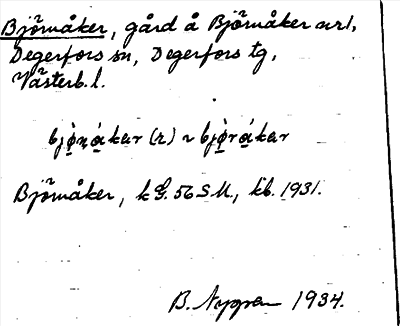 Björnåker, gård å Björnåker nr 1,
Degerfors sn, Degerfors tg,
Västerb. l.
bjø̀ṇákar (r) ~ bjø̀rákar
Björnåker, k G. 56 S.M., kb. 1931.
B. Nygren 1934.